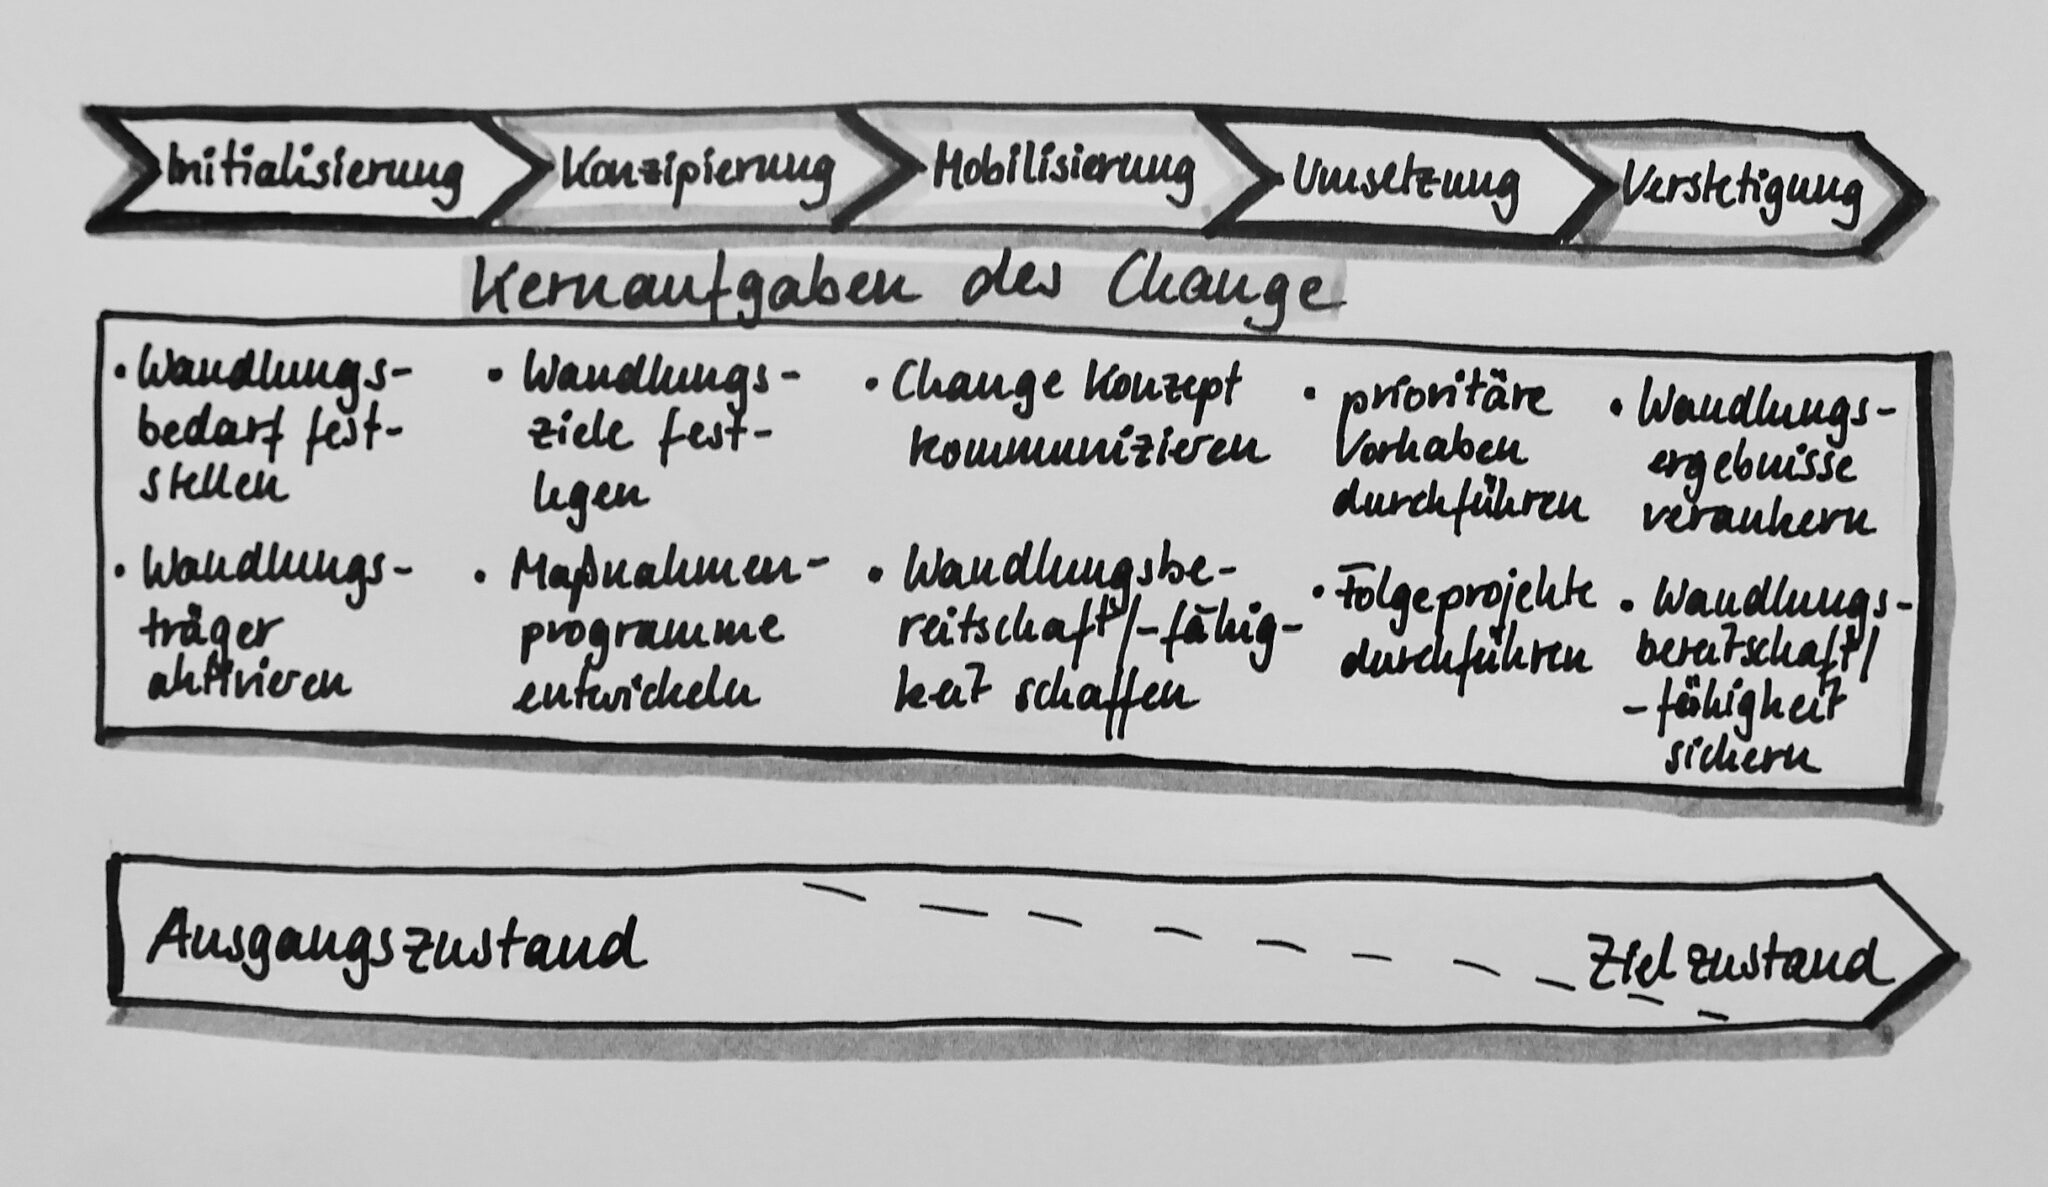 Initialisierung
Konzipierung
Mobilisierung
Umsetzung
Verstetigung
Kernaufgaben des Change
• Wandlungs-
bedarf fest-
stellen
• Wandlungs-
träger
aktivieren
• Wandlungs-
ziele fest-
legen
• Maßnahmen-
programme
entwickeln
• Change Konzept
kommunizieren
• Wandlungsbe-
reitschaft/-fähig-
keit schaffen
• prioritäre
Vorhaben
durchführen
• Folgeprojekte
durchführen
• Wandlungs-
ergebnisse
verankern
• Wandlungs-
bereitschaft/
-fähigkeit
sichern
Ausgangszustand
Zielzustand